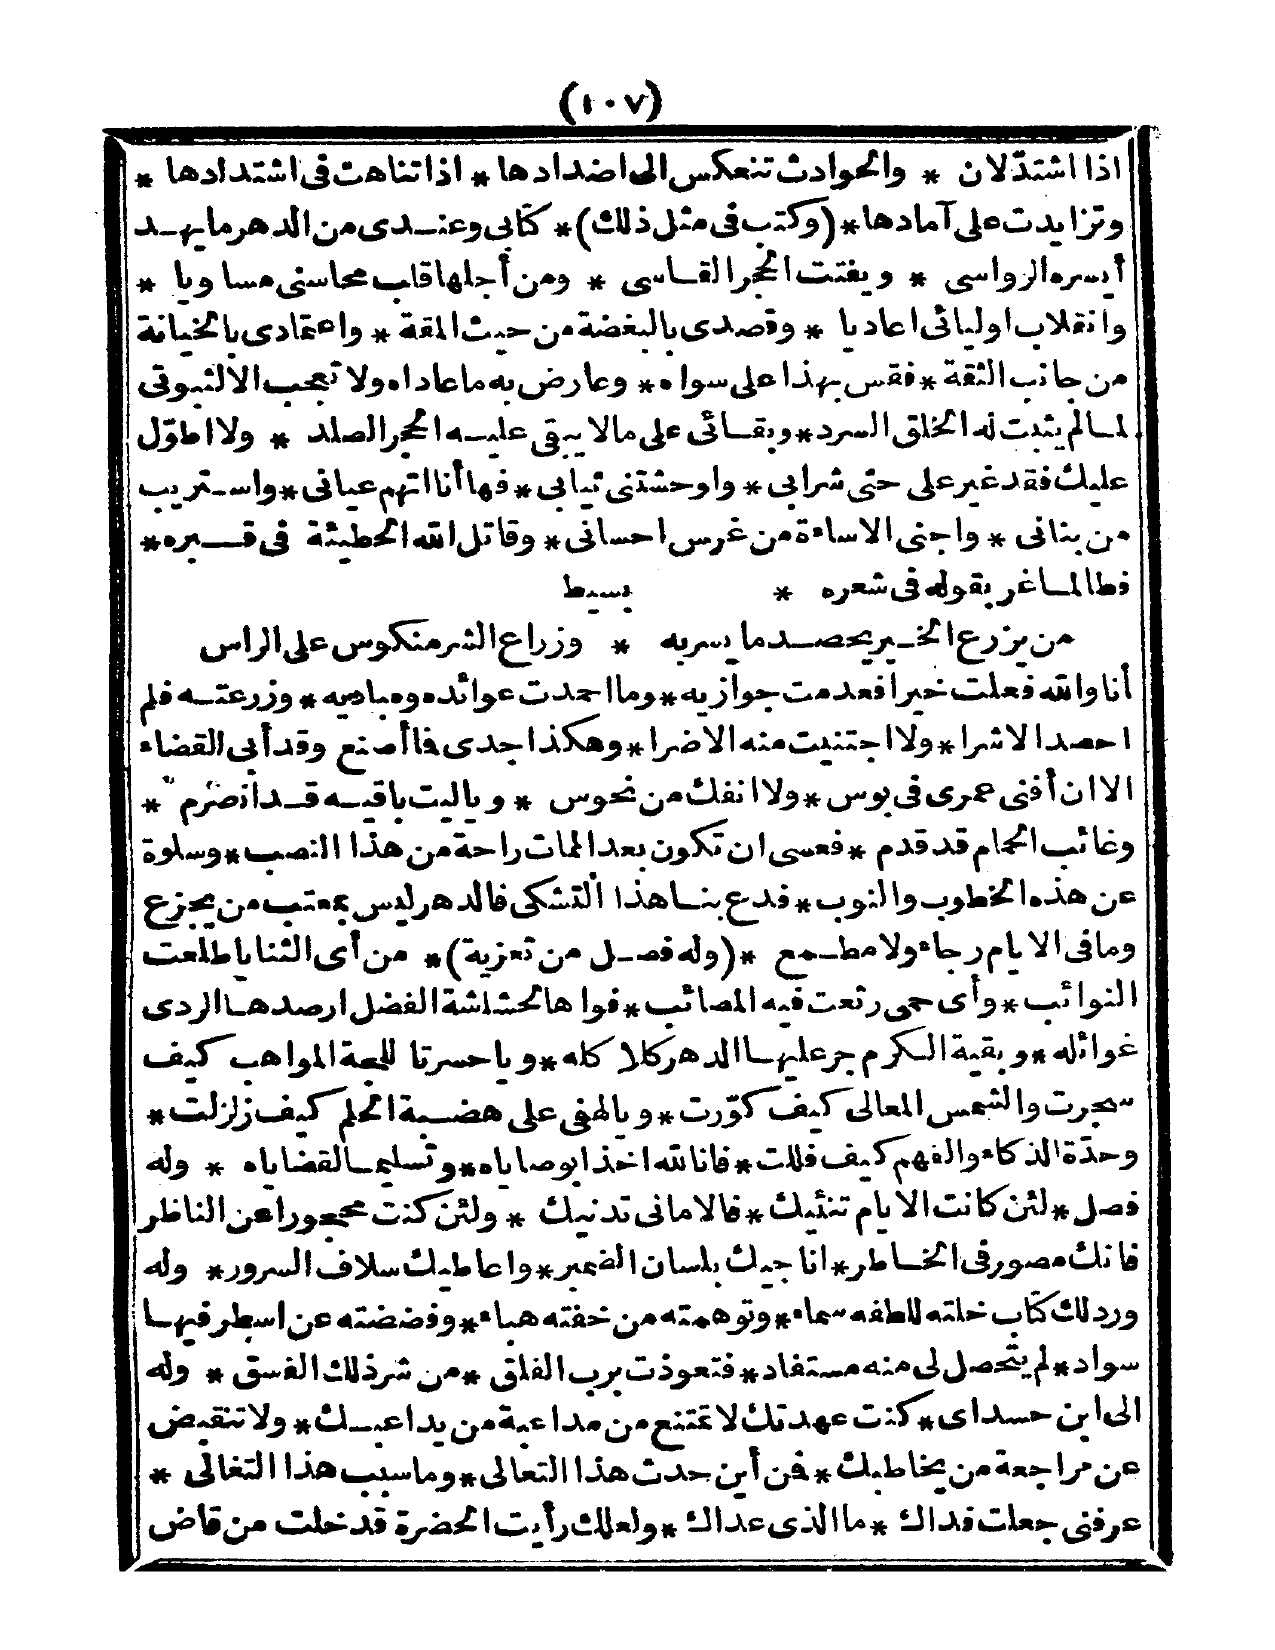 (١٠٧)
اذا اشتدّ لان * والحوادث تنعكس الى اضدادها * اذا تناهت فى اشتدادها *
وتزايدت على آمادها * (وكتب فى مثل ذلك) * كتابى وعندى من الدهر مايهد
أيسره الرواسى * ويفتت الحجر القاسى * ومن أجلها قلب محاسنى مساويا *
وانقلاب اوليائى اعاديا * وقصدى بالبغضة من حيث المقة * واعتمادى بالخيانة
من جانب الثقة * فقس بهذا على سواه * وعارض به ماعداه ولا تعجب الا لثبوتى
لمالم يثبت له الخلق السرد * وبقائى على مالا يبقى عليه الحجر الصلد * ولا اطوّل
عليك فقد غير على حتى شرابى * واوحشتنى ثيابى * فها أنا اتهم عيانى * واستريب
من بنانى * واجنى الاساءة من غرس احسانى * وقاتل الله الحطيئة فى قبره *
فطالما غر بقوله فى شعره * بسيط
من يزرع الخير يحصد ما يسر به * وزراع الشر منكوس على الراس
أنا والله فعلت خيرا فعدمت جوازيه * وما احمدت عوائده ومباديه * وزرعته فلم
احصد الا شرا * ولا اجتنيت منه الا ضرا * وهكذا جدى فا أصنع وقد أبى القضاء
الا ان أفنى عمرى فى بوس * ولا انفك من نحوس * ويا ليت باقيه قد انصرم *
وغائب الحمام قد قدم * فعسى ان تكون بعد الممات راحة من هذا النصب * وسلوة
عن هذه الخطوب والنوب * فدع بنا هذا ألتشكى فالدهر ليس بمعتب من يجزع
وما فى الايام رجاء ولا مطمع * (وله فصل من تعزية) * من أى الثنايا طلعت
النوائب * وأى حمى رتعت فيه المصائب * فواها لحشاشة الفضل ارصدها الردى
غوائله * وبقية الكرم جر عليها الدهر كلا كله * ويا حسرتا للجة المواهب كيف
سجرت والشمس المعالى كيف كوّرت * ويا لهفى على هضبة الحلم كيف زلزلت *
وحدّة الذكاء والفهم كيف فللت * فانا لله اخذا بوصاياه * وتسليما لقضاياه * وله
فصل * لئن كانت الايام تنئيك * فالامانى تدنيك * ولئن كنت محجورا عن الناظر
فانك مصور فى الخاطر * اناجيك بلسان الضمير * واعاطيك سلاف السرور * وله
ورد لك كتاب خلته للطفه سماء * وتوهمته من خفته هباء * وفضضته عن اسطر فيها
سواد * لم يتحصل لى منه مستفاد * فتعوذت برب الفلق * من شر ذلك الغسق * وله
الى ابن حسداى * كنت عهدتك لا تمتنع من مداعبة من يداعبك * ولا تنقبض
عن مراجعة من يخاطبك * فمن أين حدث هذا التعالى * وما سبب هذا التغالى *
عرفنى جعلت فداك * ما الذى عداك * ولعلك رأيت الحضرة قد خلت من قاض